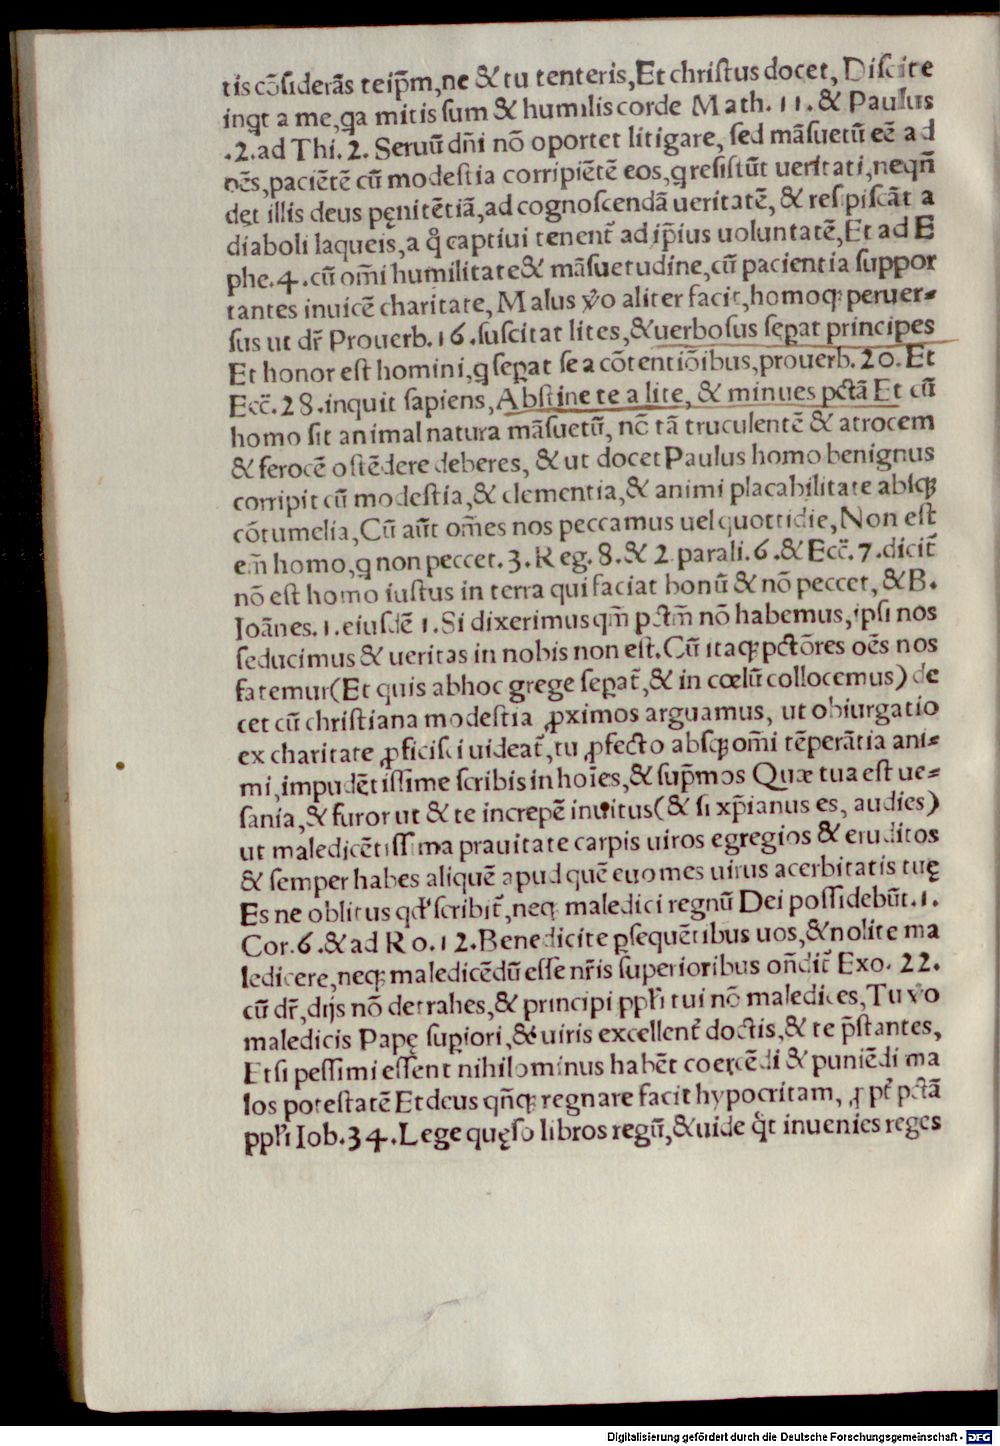 tis cõsiderãs teip̃m,ne & tu tenteris,Et christus docet, Discite
inqt a me,qa mitis sum & humilis corde Math. 11. & Paulus
.2.ad Thi. 2. Seruũ dñi nõ oportet litigare, sed mãsuetũ eẽ ad
oẽs,paciẽtẽ cũ modestia corripiẽtẽ eos,q resistũt ueritati,neqñ
det illis deus pęnitẽtiã,ad cognoscendã ueritatẽ, & resipiscãt a
diaboli laqueis,a q̊ captiui tenent᷑ ad ip̃ius uoluntatẽ,Et ad E
phe.4.cũ om̃i humilitate& mãsuetudine,cũ pacientia suppor
tantes inuicẽ charitate, Malus v̊o aliter facit,homoqꝫ peruer-
sus ut dr̃ Prouerb.16.suscitat lites,&uerbosus seꝑat principes
Et honor est homini,q seꝑat se a cõtentiõibus,prouerb.20.Et
Ecc̃.28.inquit sapiens,Abstine te a lite, & minues pctã Et cũ
homo sit animal natura mãsuetũ, nõ tã truculentẽ & atrocem
& ferocẽ ostẽdere deberes, & ut docet Paulus homo benignus
corripit cũ modestia,& clementia,& animi placabilitate absqꝫ
cõtumelia,Cũ aũt om̃es nos peccamus uel quottidie,Non est
em̃ homo,q non peccet.3.Reg.8.& 2.parali.6.&Ecc̃.7.dicit᷑
nõ est homo iustus in terra qui faciat bonũ & nõ peccet,&B.
Ioãnes.1.eiusdẽ 1.Si dixerimus qm̃ pctm̃ nõ habemus,ipsi nos
seducimus & ueritas in nobis non est.Cũ itaqꝫ pctõres oẽs nos
fatemur(Et quis abhoc grege seꝑat᷑,& in cœlũ collocemus)de
cet cũ christiana modestia ꝓximos arguamus, ut obiurgatio
ex charitate ꝓficisci uideat᷑,tu ꝓfecto absqꝫ om̃i tẽperãtia ani-
mi,impudẽtissime scribis in hoĩes,& sup̃mos Quæ tua est ue-
sania,& furor ut & te increpẽ inuitus(& si xp̃ianus es, audies)
ut maledicẽtissima prauitate carpis uiros egregios & eruditos
& semper habes aliquẽ apud quẽ euomes uirus acerbitatis tuę
Es ne oblitus qđ scribit᷑,neqꝫ maledici regnũ Dei possidebũt.1.
Cor.6.& ad Ro.12.Benedicite ꝑsequẽtibus uos,&nolite ma
ledicere,neqꝫ maledicẽdũ esse nr̃is superioribus oñdit᷑ Exo. 22.
cũ dr̃,dijs nõ detrahes,& principi ppl̃i tui nõ maledices,Tu v̊o
maledicis Papę suꝑiori,& uiris excellent᷑ doctis,& te p̃stantes,
Etsi pessimi essent nihilominus habẽt coercẽdi & puniẽdi ma
los potestatẽ Et deus qñqꝫ regnare facit hypocritam, ꝓpt᷑ pctã
ppl̃i Iob.34.Lege quęso libros regũ,&uide q̊t inuenies reges
Digitalisierung gefördert durch die Deutsche Forschungsgemeinschaft - DFG